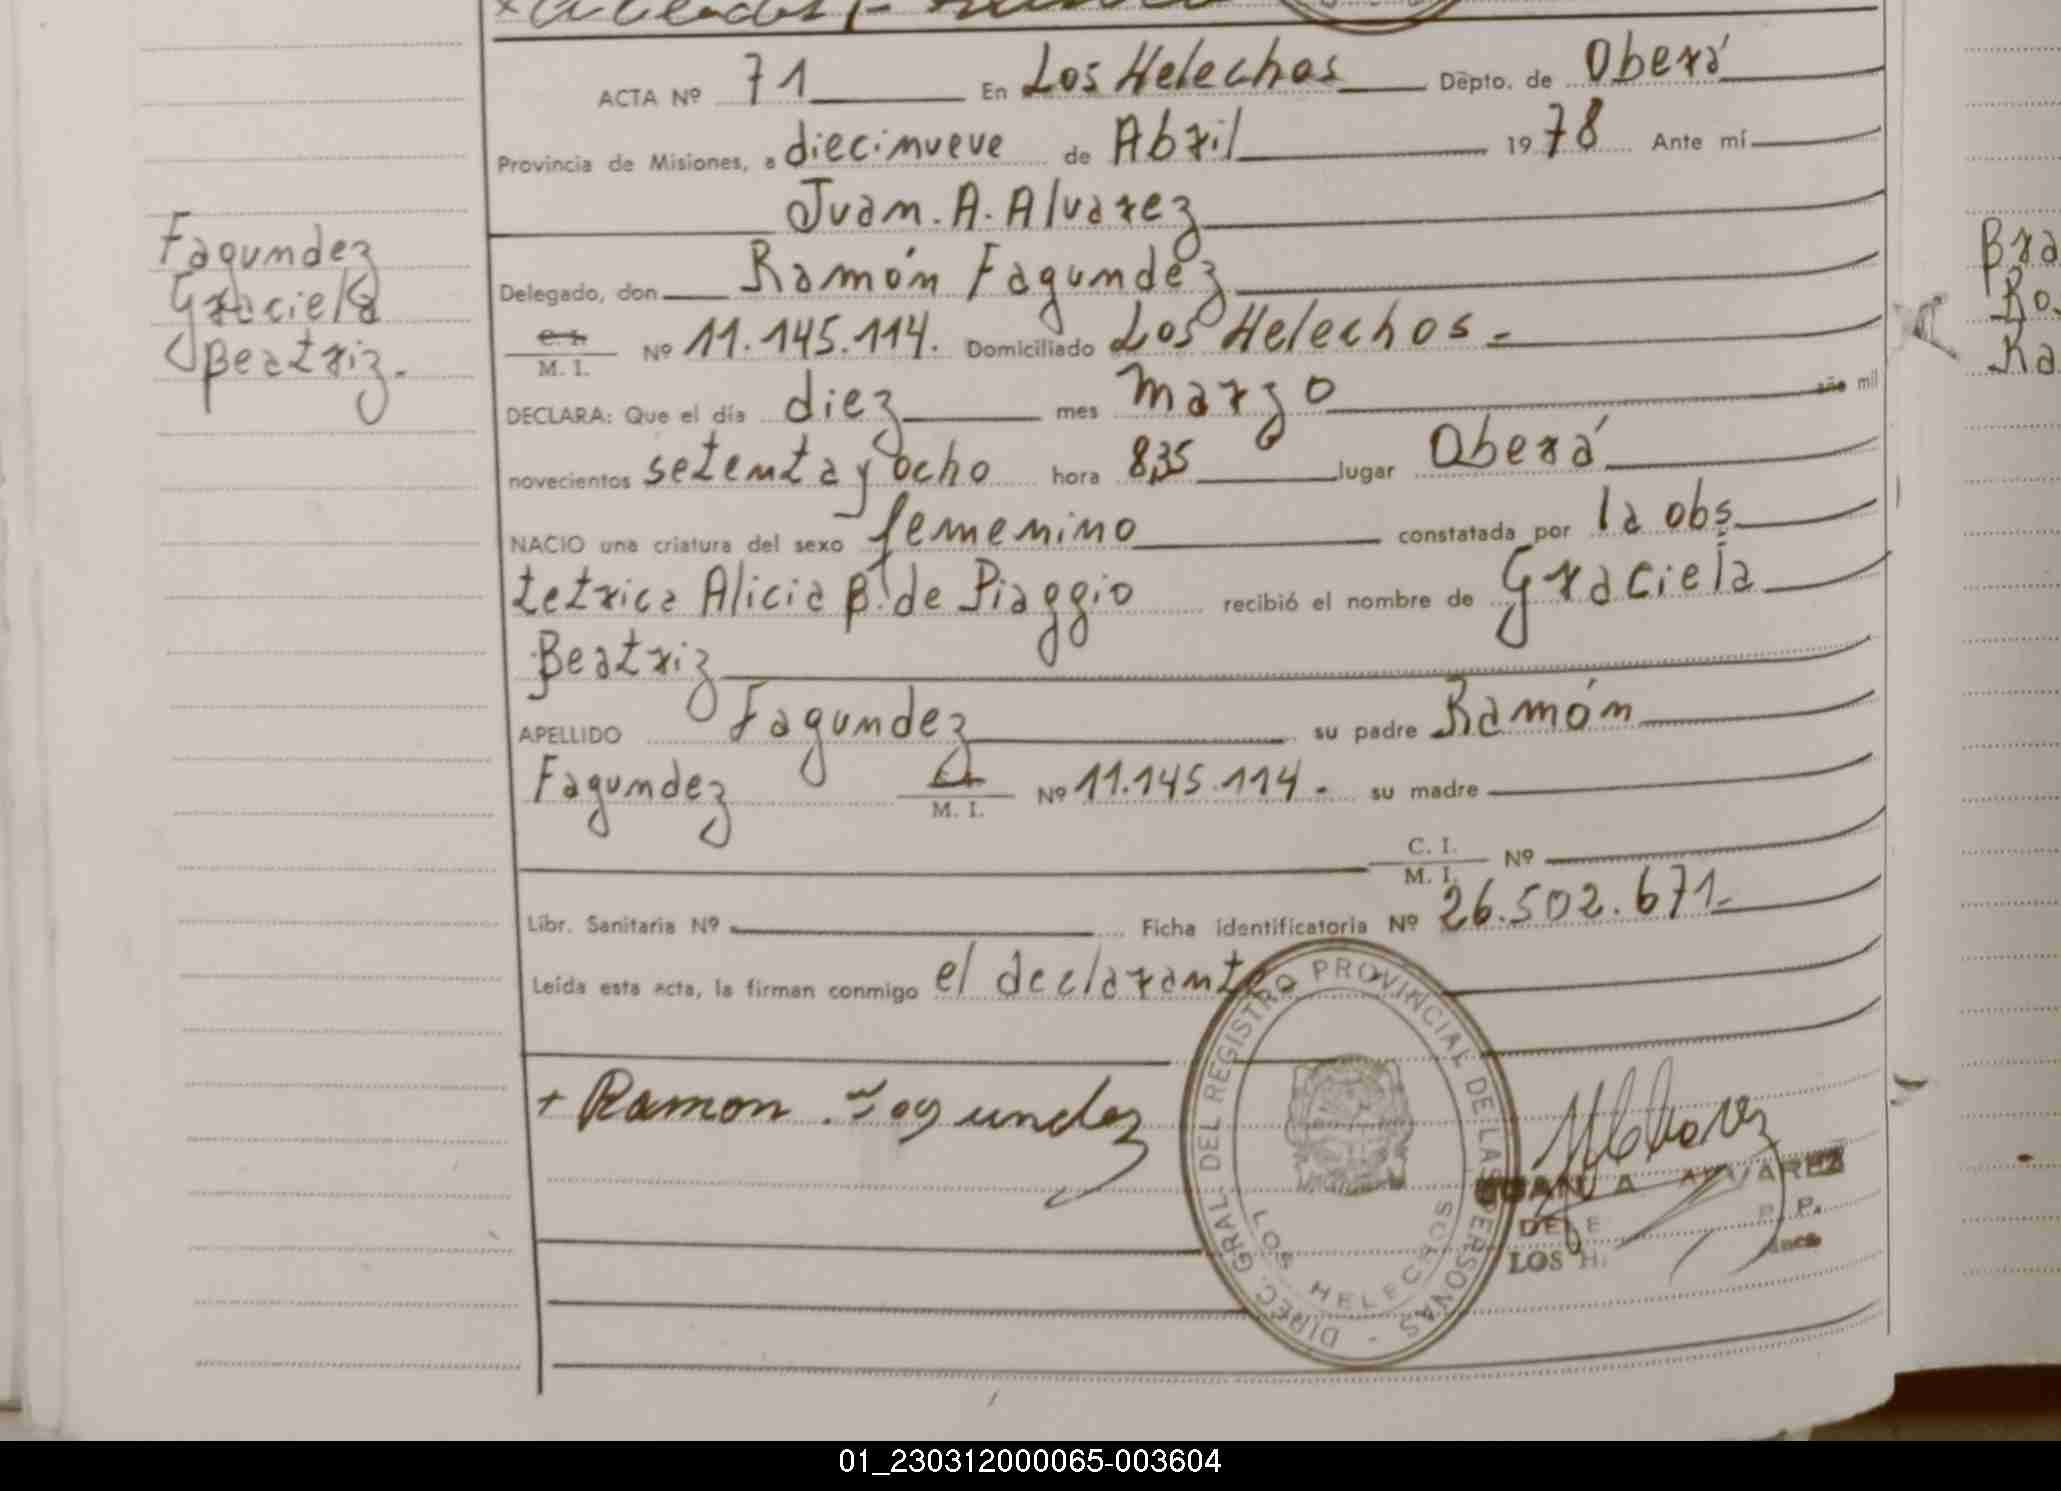 ACTA Nº 71 En Los Helechos Depto. de Oberá
Provincia de Misiones, a diecinueve de Abril 1978 Ante mí
Juan. A. Alvarez
Fagundez
Graciela
Beatriz.
Delegado, don Ramón Fagundez
C. I. / M. I. Nº 11.145.114. Domiciliado Los Helechos.-
DECLARA: Que el día diez mes marzo año mil
novecientos setenta y ocho hora 8,35 lugar Oberá
NACIO una criatura del sexo femenino constatada por la obs
tetrica Alicia B. de Piaggio recibió el nombre de Graciela
Beatriz
APELLIDO Fagundez su padre Ramón
Fagundez M. I. Nº 11.145.114.- su madre
C. I. / M. I. Nº
Libr. Sanitaria Nº Ficha identificatoria Nº 26.502.671.-
Leída esta acta, la firman conmigo el declarante
+ Ramon Fagundez
DIREC. GRAL. DEL REGISTRO PROVINCIAL DE LAS PERSONAS -
LOS HELECHOS
JUAN A. ALVAREZ
Bra
Ro
Ra
01_230312000065-003604